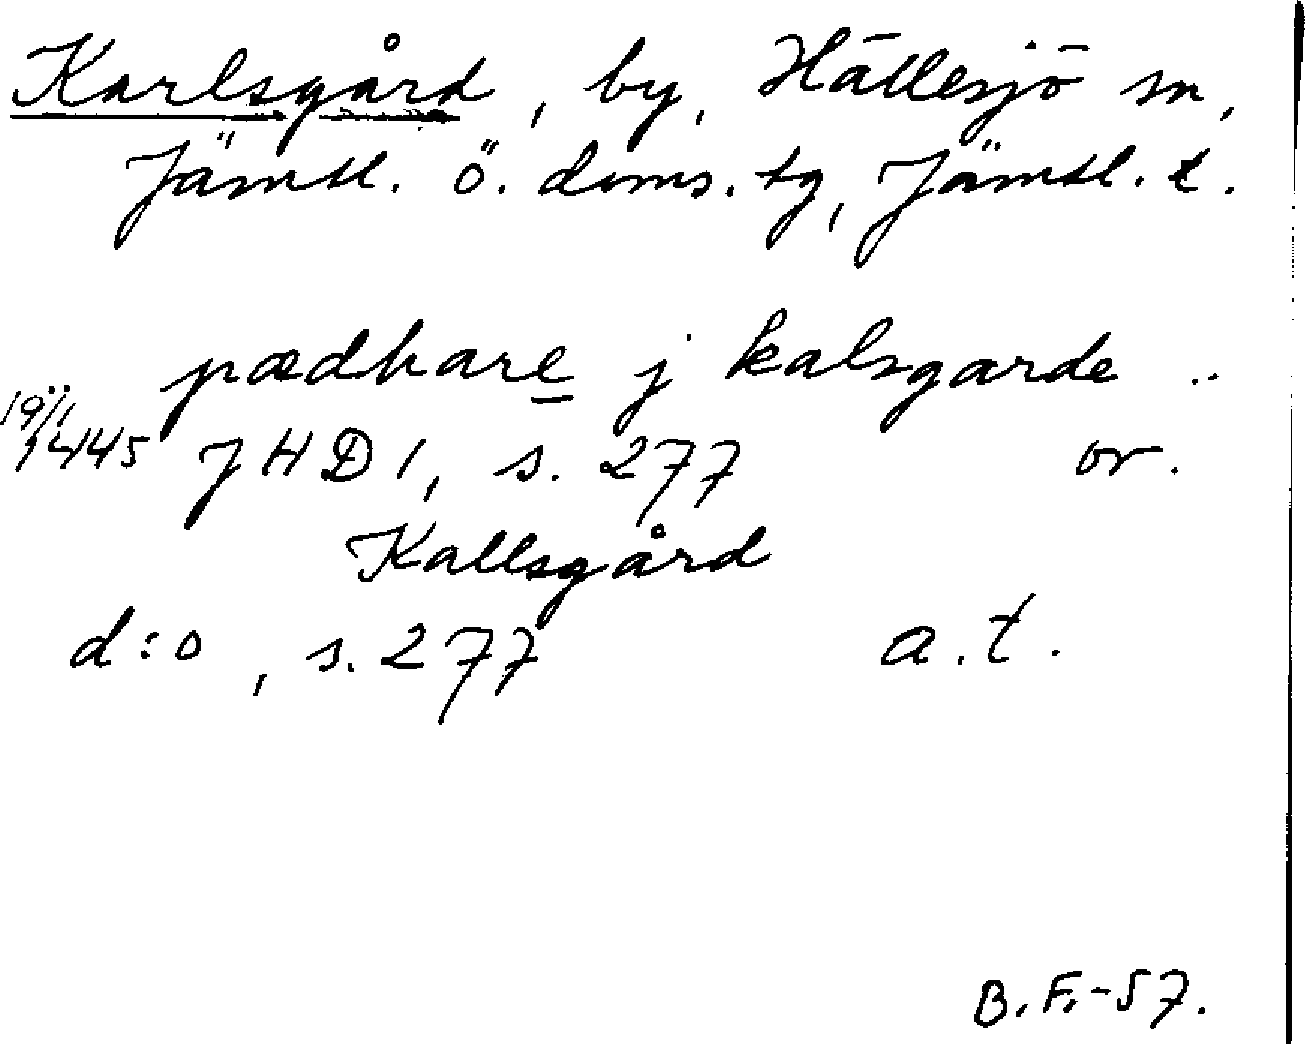 Karlsgård, by, Hällesjö sn,
Jämtl. ö. doms. tg, Jämtl. l.
pædhare j kalsgarde ..
19/1 1445 JHD 1, s. 277 or.
Kallsgård
d:o, s. 277 a.t.
B.F.-57.